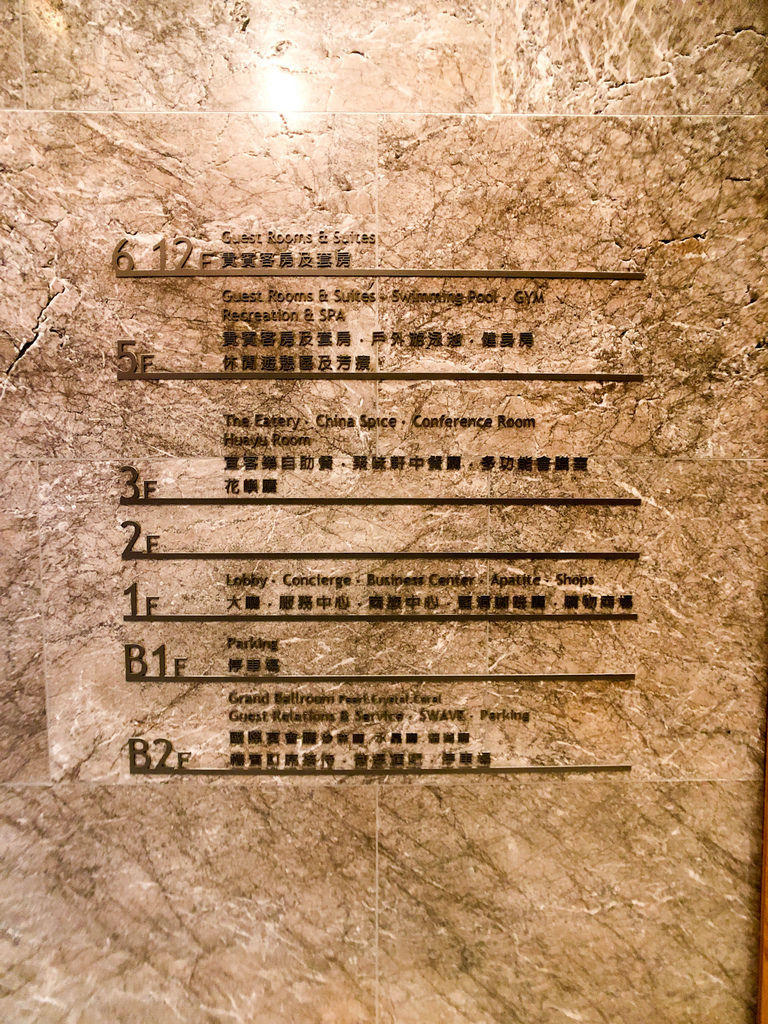 6 12F
Guest Rooms & Suites
貴賓客房及套房
Guest Rooms & Suites · Swimming Pool · GYM
Recreation & SPA
貴賓客房及套房 · 戶外游泳池 · 健身房
5F
休閒遊憩區及芳療
The Eatery · China Spice · Conference Room
Huayu Room
宜客樂自助餐 · 聚味軒中餐廳 · 多功能會議室
3F
花嶼廳
2F
Lobby · Concierge · Business Center · Apatite · Shops
1F
大廳 · 服務中心 · 商旅中心 · 購物商場
Parking
B1F
停車場
Grand Ballroom Pearl Crystal Coral
Guest Relations & Service · SWAVE · Parking
國際宴會廳 水晶廳
B2F
停車場